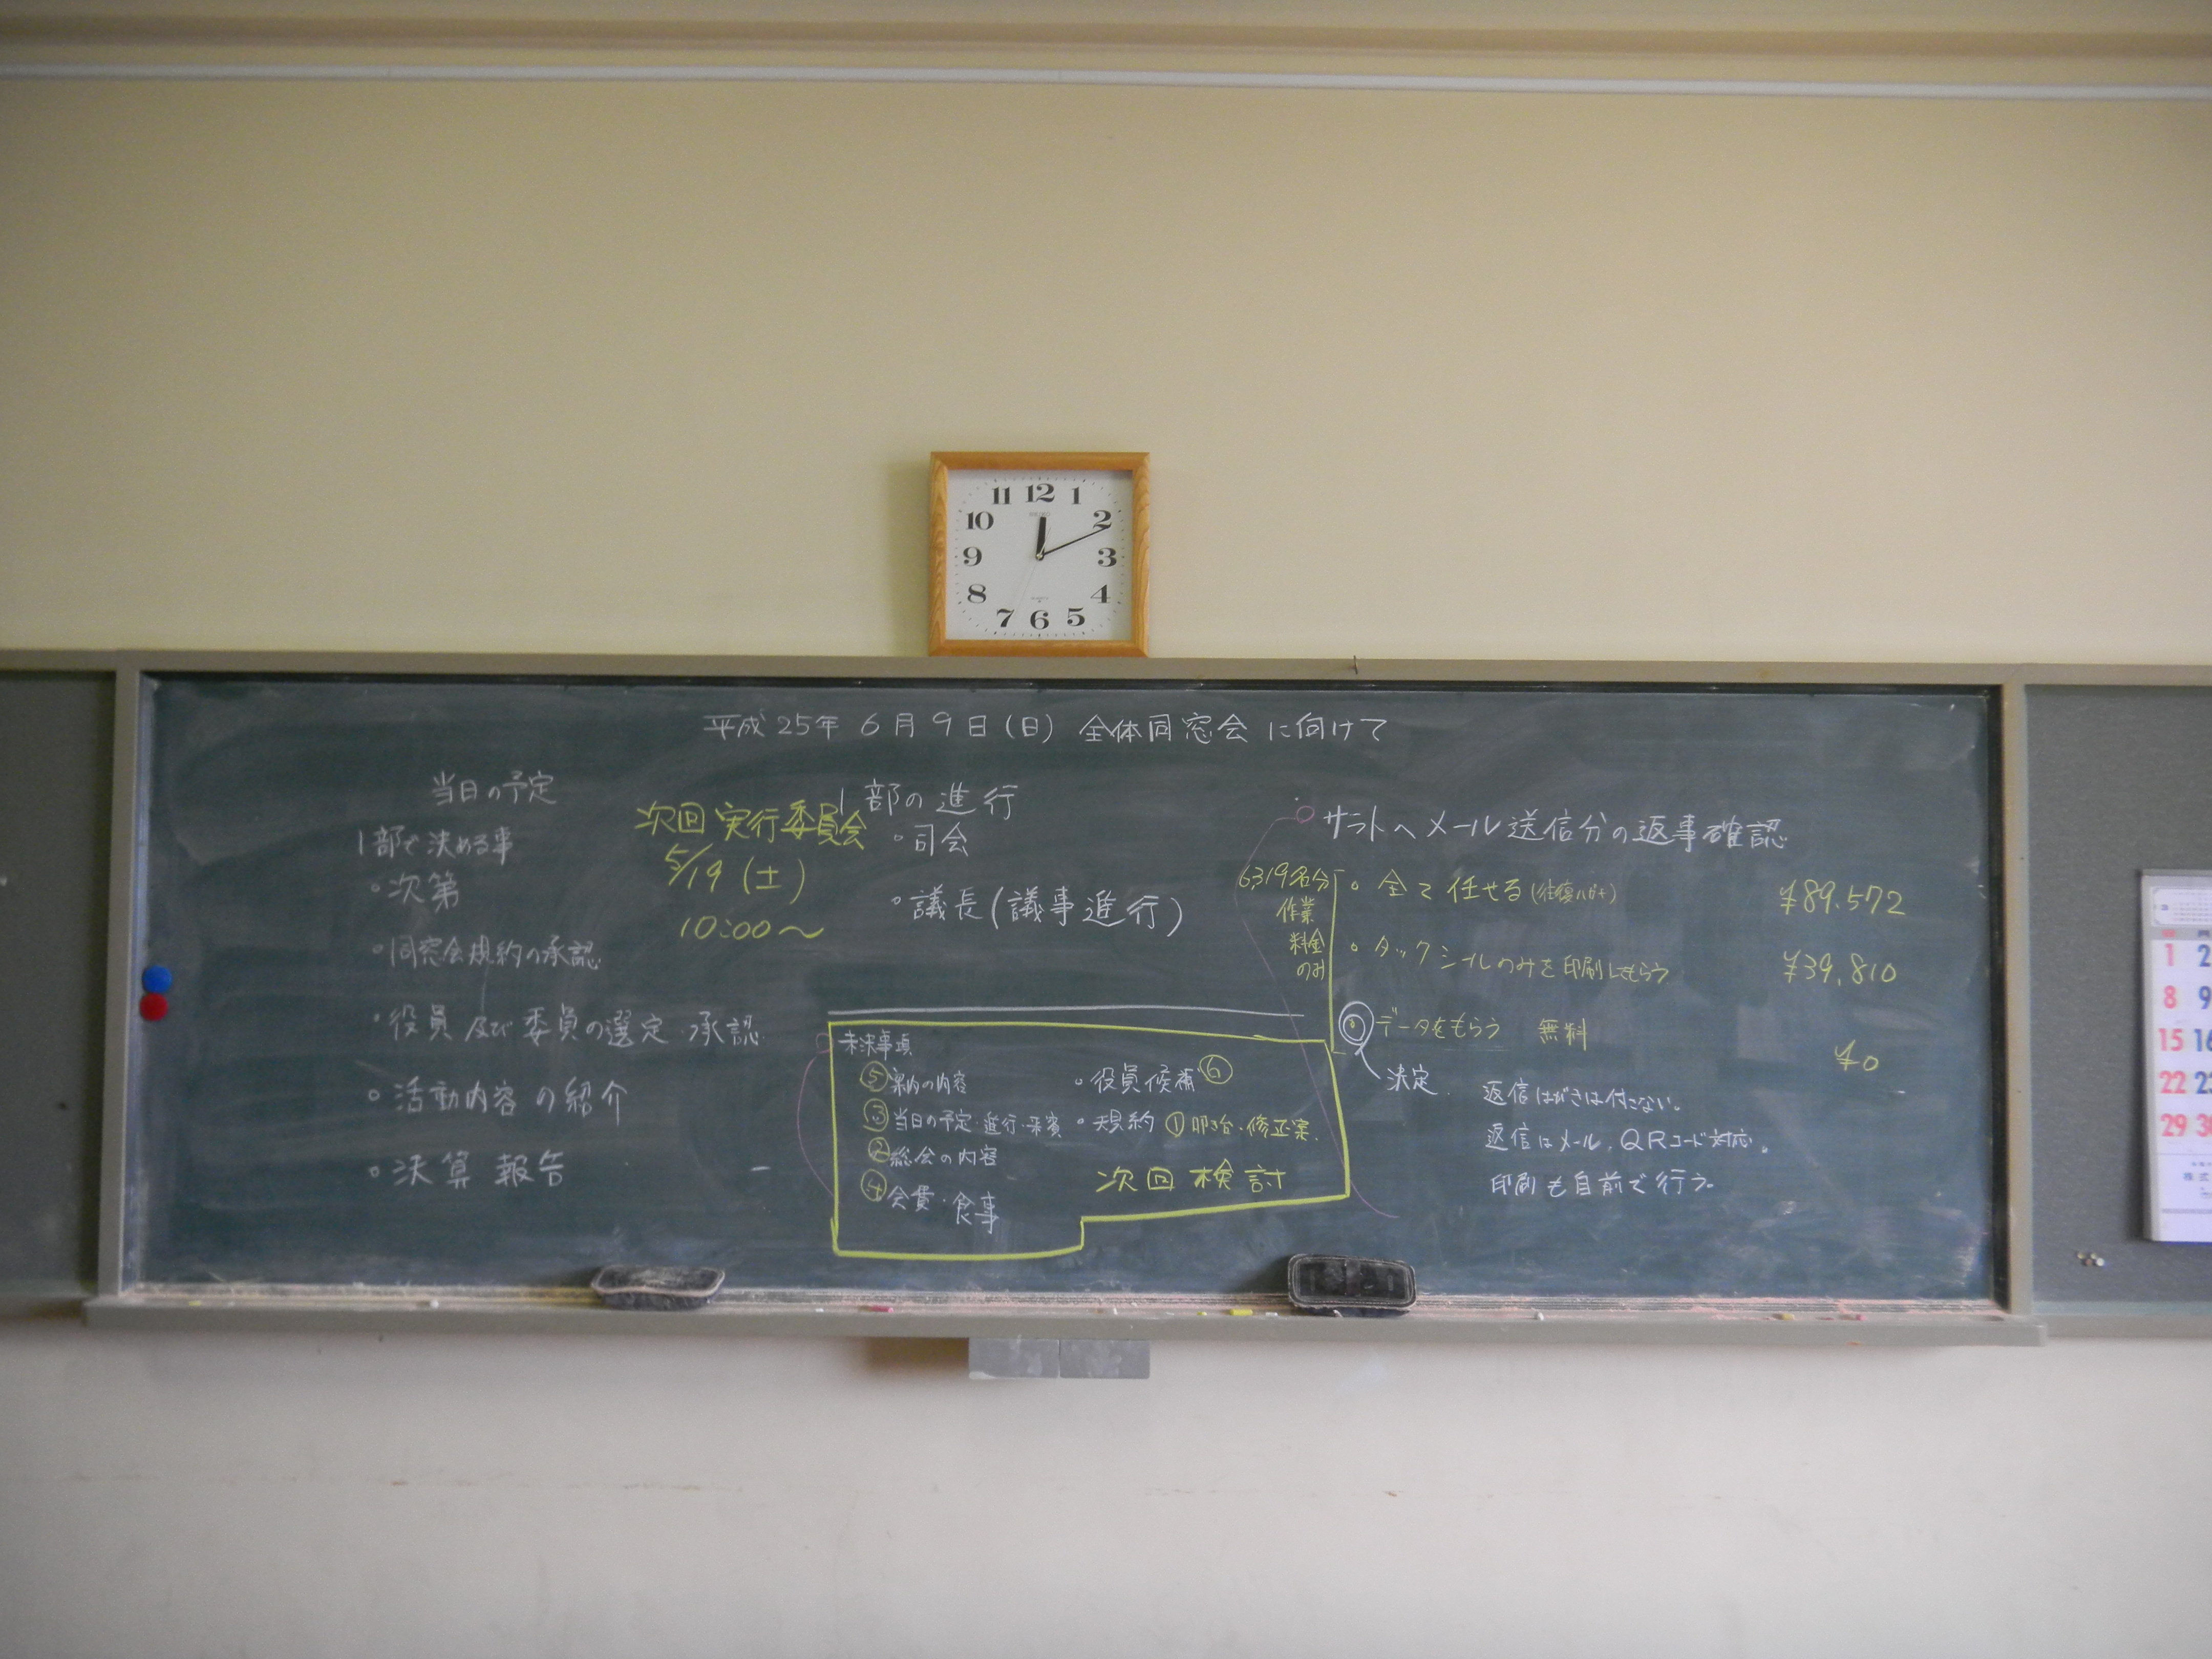 11 12 1
10 2
9 3
8 4
7 6 5
平成25年 6月9日(日) 全体同窓会に向けて
当日の予定
1部で決める事
・次第
・同窓会規約の承認
・役員及び委員の選定・承認
・活動内容の紹介
・決算報告
次回実行委員会
5/19 (土)
10:00〜
1部の進行
・司会
・議長(議事進行)
未決事項
⑤案内の内容
③当日の予定・進行・来賓
②総会の内容
④会費・食事
・役員候補⑥
・規約 ①叩き台・修正案.
次回検討
サラトへメール送信分の返事確認
6319名分
作業
料金
のみ
・全て任せる(往復ハガキ) ¥89.572
・タックシールのみを印刷してもらう ¥39,810
◎データをもらう 無料 ¥0
決定.
返信はがきは付けない。
返信はメール,QRコード対応。
印刷も自前で行う。
1 2
8 9
15 16
22 23
29 30
株式